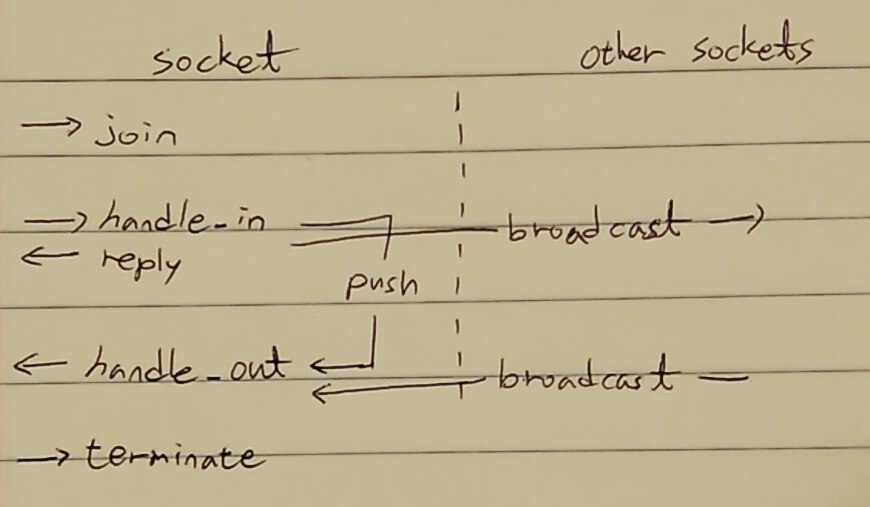 socket other sockets
join
handle_in broadcast
reply
push
handle_out broadcast
terminate